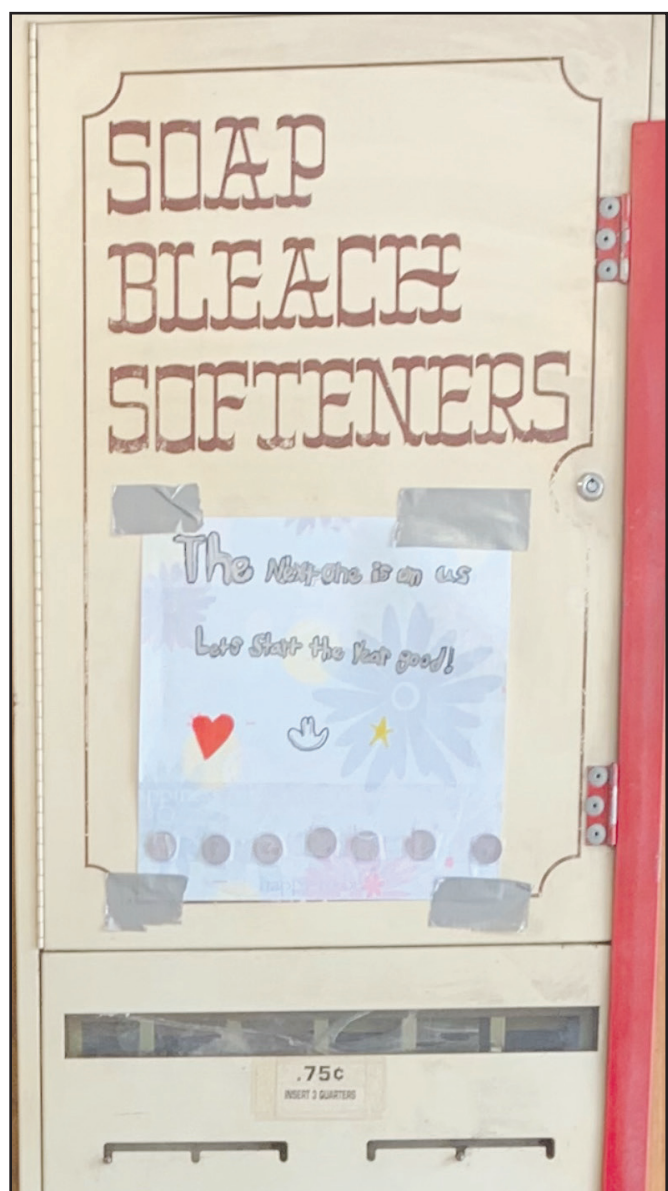 SOAP
BLEACH
SOFTENERS
The Next one is on us
Lets Start the Year good!
.75¢
INSERT 3 QUARTERS